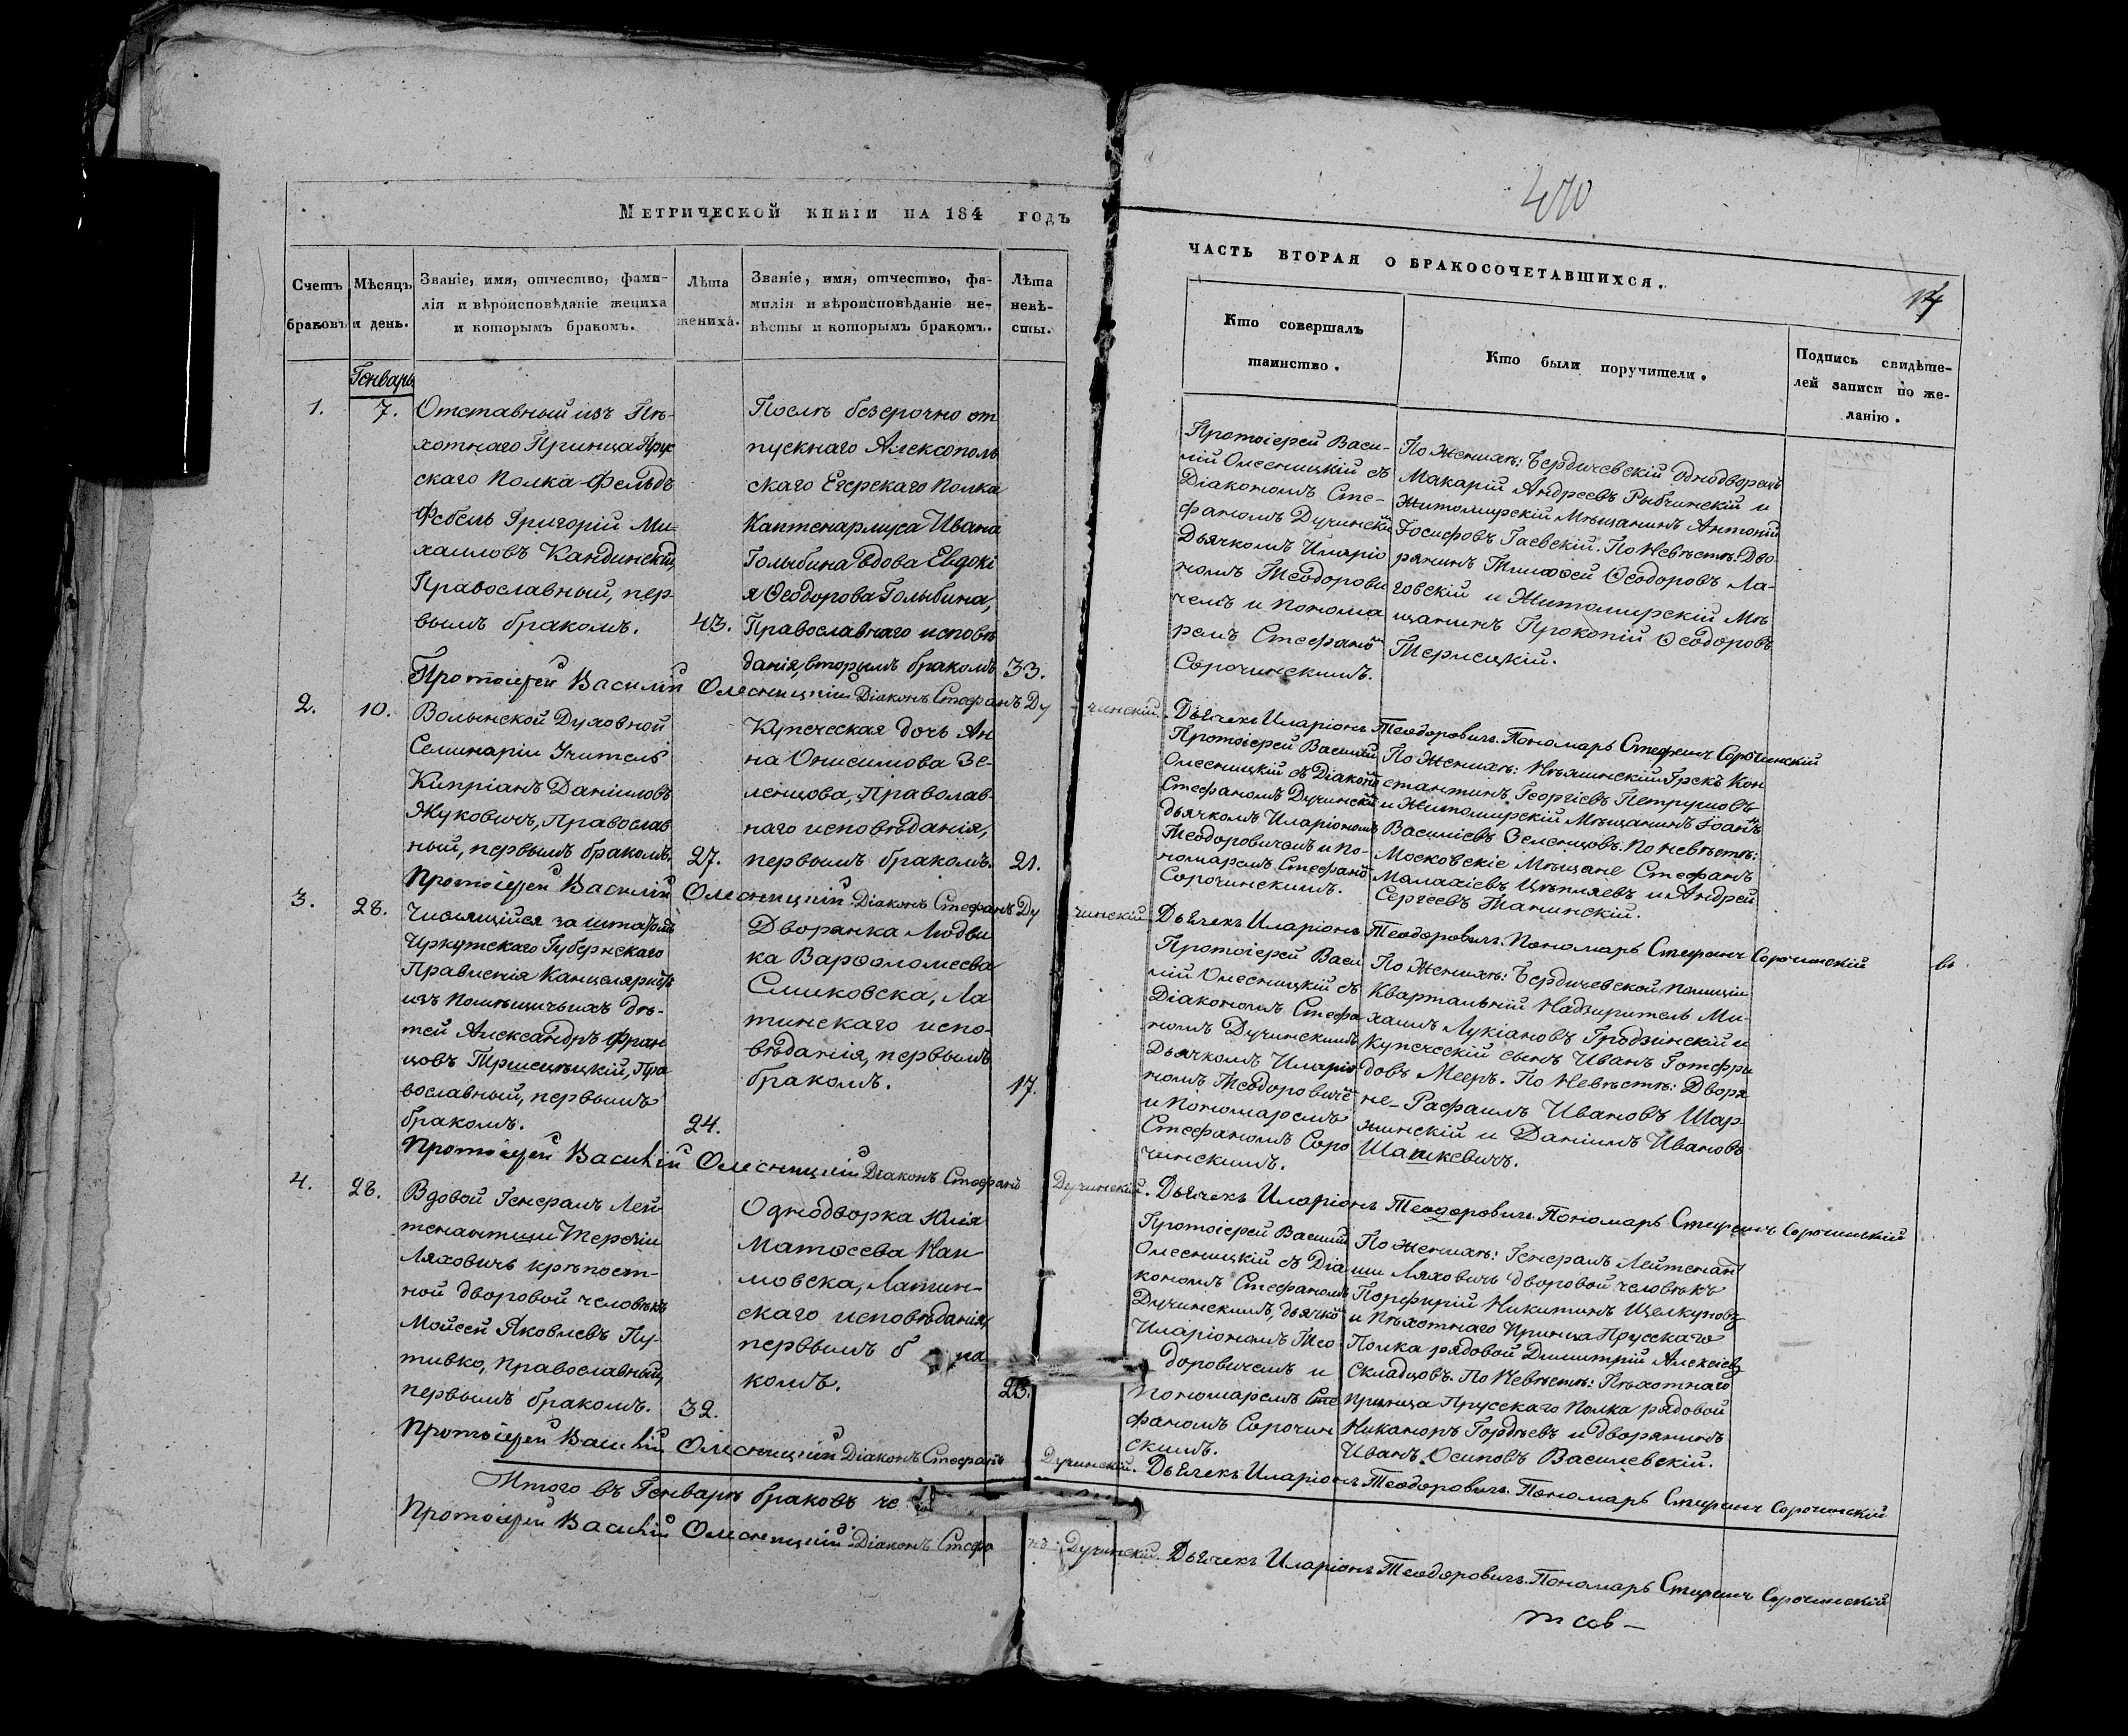 Метрической книги на 184 годъ
Счетъ браковъ
Мѣсяцъ и день.
Званіе, имя, отчество, фами-
лія и вѣроисповѣданіе жениха
и которымъ бракомъ.
Лѣта
жениха.
Званіе, имя, отчество, фа-
милія и вѣроисповѣданіе не-
вѣсты и которымъ бракомъ.
Лѣта
невѣ-
сты.
Генварь
1.
7.
Отставный изъ Пѣ-
хотнаго Принца Прус
скаго Полка Фельдъ
Фебель Григорій Ми-
хаиловъ Кандинскій,
Православный, пер-
вымъ бракомъ.
43.
Послѣ безсрочно от
пускнаго Алексополь
скаго Егерскаго Полка
Каптенармуса Ивана
Голыбина вдова Евдокі
я Ѳеодорова Голыбина,
Православнаго исповѣ
данія, вторымъ бракомъ
33.
Протоіерей Василій Олесницкій Діаконъ Стефанъ Ду
2.
10.
Волынской Духовной
Семинаріи Учитель
Кипріанъ Даніиловъ
Жуковичъ, Православ
ный, первымъ бракомъ.
27.
Купеческая дочь Ан
на Онисимова Зе-
ленцова, Праволав-
наго исповѣданія,
первымъ бракомъ.
21.
Протоіерей Василій Олесницкій Діаконъ Стефанъ Ду
3.
28.
Числящійся за штатомъ
Иркутскаго Губернскаго
Правленія Канцеляристъ
изъ помѣщичьихъ дѣ-
тей Александръ Фран
цовъ Трисецкій, Пра
вославный, первымъ
бракомъ.
24.
Дворянка Людви
ка Варѳоломеева
Слиековска, Ла
тинскаго испо-
вѣданія, первымъ
бракомъ.
17.
Протоіерей Василій Олесницкій Діаконъ Стефанъ
4.
28.
Вдовой Генералъ Лей
тенантши Терезіи
Ляховичъ крѣпост-
ной дворовой человѣкъ
Мойсей Яковлевъ Пу-
тивко, Православный,
первымъ бракомъ.
32.
Однодворка Юлія
Матѳеева Нац-
мовска, Латин-
скаго исповѣданія,
первымъ б ра
комъ.
23.
Протоіерей Василій Олесницкій Діаконъ Стефанъ
Итого въ Генварѣ браковъ че
Протоіерей Василій Олесницкій Діаконъ Стефа
470
Часть вторая о бракосочетавшихся.
14
Кто совершалъ
таинство.
Кто были поручители.
Подпись свидѣте-
лей записи по же-
ланію.
Протоіерей Васи-
лій Олесницкій съ
Діакономъ Сте-
фаномъ Дучинскимъ
Дьячкомъ Иларіо
номъ Теодорови
чемъ и понома
ремъ Стефаномъ
Сорочинскимъ.
По Женихѣ: Бердичевскій Однодворецъ
Макарій Андреевъ Рыбчинскій и
Житомирскій Мѣщанинъ Антоній
Іосифовъ Гаевскій. По Невѣстѣ: Дво-
рянинъ Тимоѳей Ѳеодоровъ Ла-
говскій и Житомирскій Мѣ
щанинъ Прокопій Ѳеодоровъ
Терлецкій.
чинскій. Дьячекъ Иларіонъ Теодоровичъ. Пономарь Стефанъ Сорочинскій
Протоіерей Василій
Олесницкій съ Діакономъ
Стефаномъ Дучинскимъ
дьячкомъ Иларіономъ
Теодоровичемъ и по-
номаремъ Стефаномъ
Сорочинскимъ.
По Женихѣ: Нѣжинскій Грекъ Кон
стантинъ Георгіевъ Петрушовъ
и Житомирскій Мѣщанинъ Іоаннъ
Василіевъ Зеленцовъ. По невѣстѣ:
Московскіе Мѣщане Стефанъ
Малахіевъ Цѣпляевъ и Андрей
Сергеевъ Танинскій.
чинскій Дьячекъ Иларіонъ Теодоровичъ. Пономарь Стефанъ Сорочинскій
Протоіерей Васи
лій Олесницкій съ
Діакономъ Стефа
номъ Дучинскимъ
Дьячкомъ Иларіо
номъ Теодоровиче
и Пономаремъ
Стефаномъ Соро
чинскимъ.
По Женихѣ: Бердичевской Полиціи
Квартальній Надзиритель Ми-
хаилъ Лукіановъ Гродзинскій и
купеческій сынъ Иванъ Готфри
довъ Мееръ. По Невѣстѣ: Дворя
не Рафаилъ Ивановъ Шар-
жинскій и Даніилъ Ивановъ
Шашкевичъ.
Дучинскій. Дьячекъ Иларіонъ Теодоровичъ. Пономарь Стефанъ Сорочинскій
Протоіерей Василій
Олесницкій съ Діа
кономъ Стефаномъ
Дучинскимъ, дьячкомъ
Иларіономъ Тео
доровичемъ и
Пономаремъ Сте
фаномъ Сорочин
скимъ.
По женихѣ: Генералъ Лейтенант
ши Ляховичъ дворовой человѣкъ
Порфирій Никитинъ Щелкуновъ
и Пѣхотнаго Принца Прусскаго
Полка рядовой Димитрій Алексіевъ
Складцовъ. По Невѣстѣ: Пѣхотнаго
Принца Прусскаго Полка рядовой
Никаноръ Гордѣевъ и дворянинъ
Иванъ Осиповъ Василевскій.
Дучинскій. Дьячекъ Иларіонъ Теодоровичъ. Пономарь Стефанъ Сорочинскій
нъ Дучинскій. Дьячекъ Иларіонъ Теодоровичъ. Пономарь Стефанъ Сорочинскій